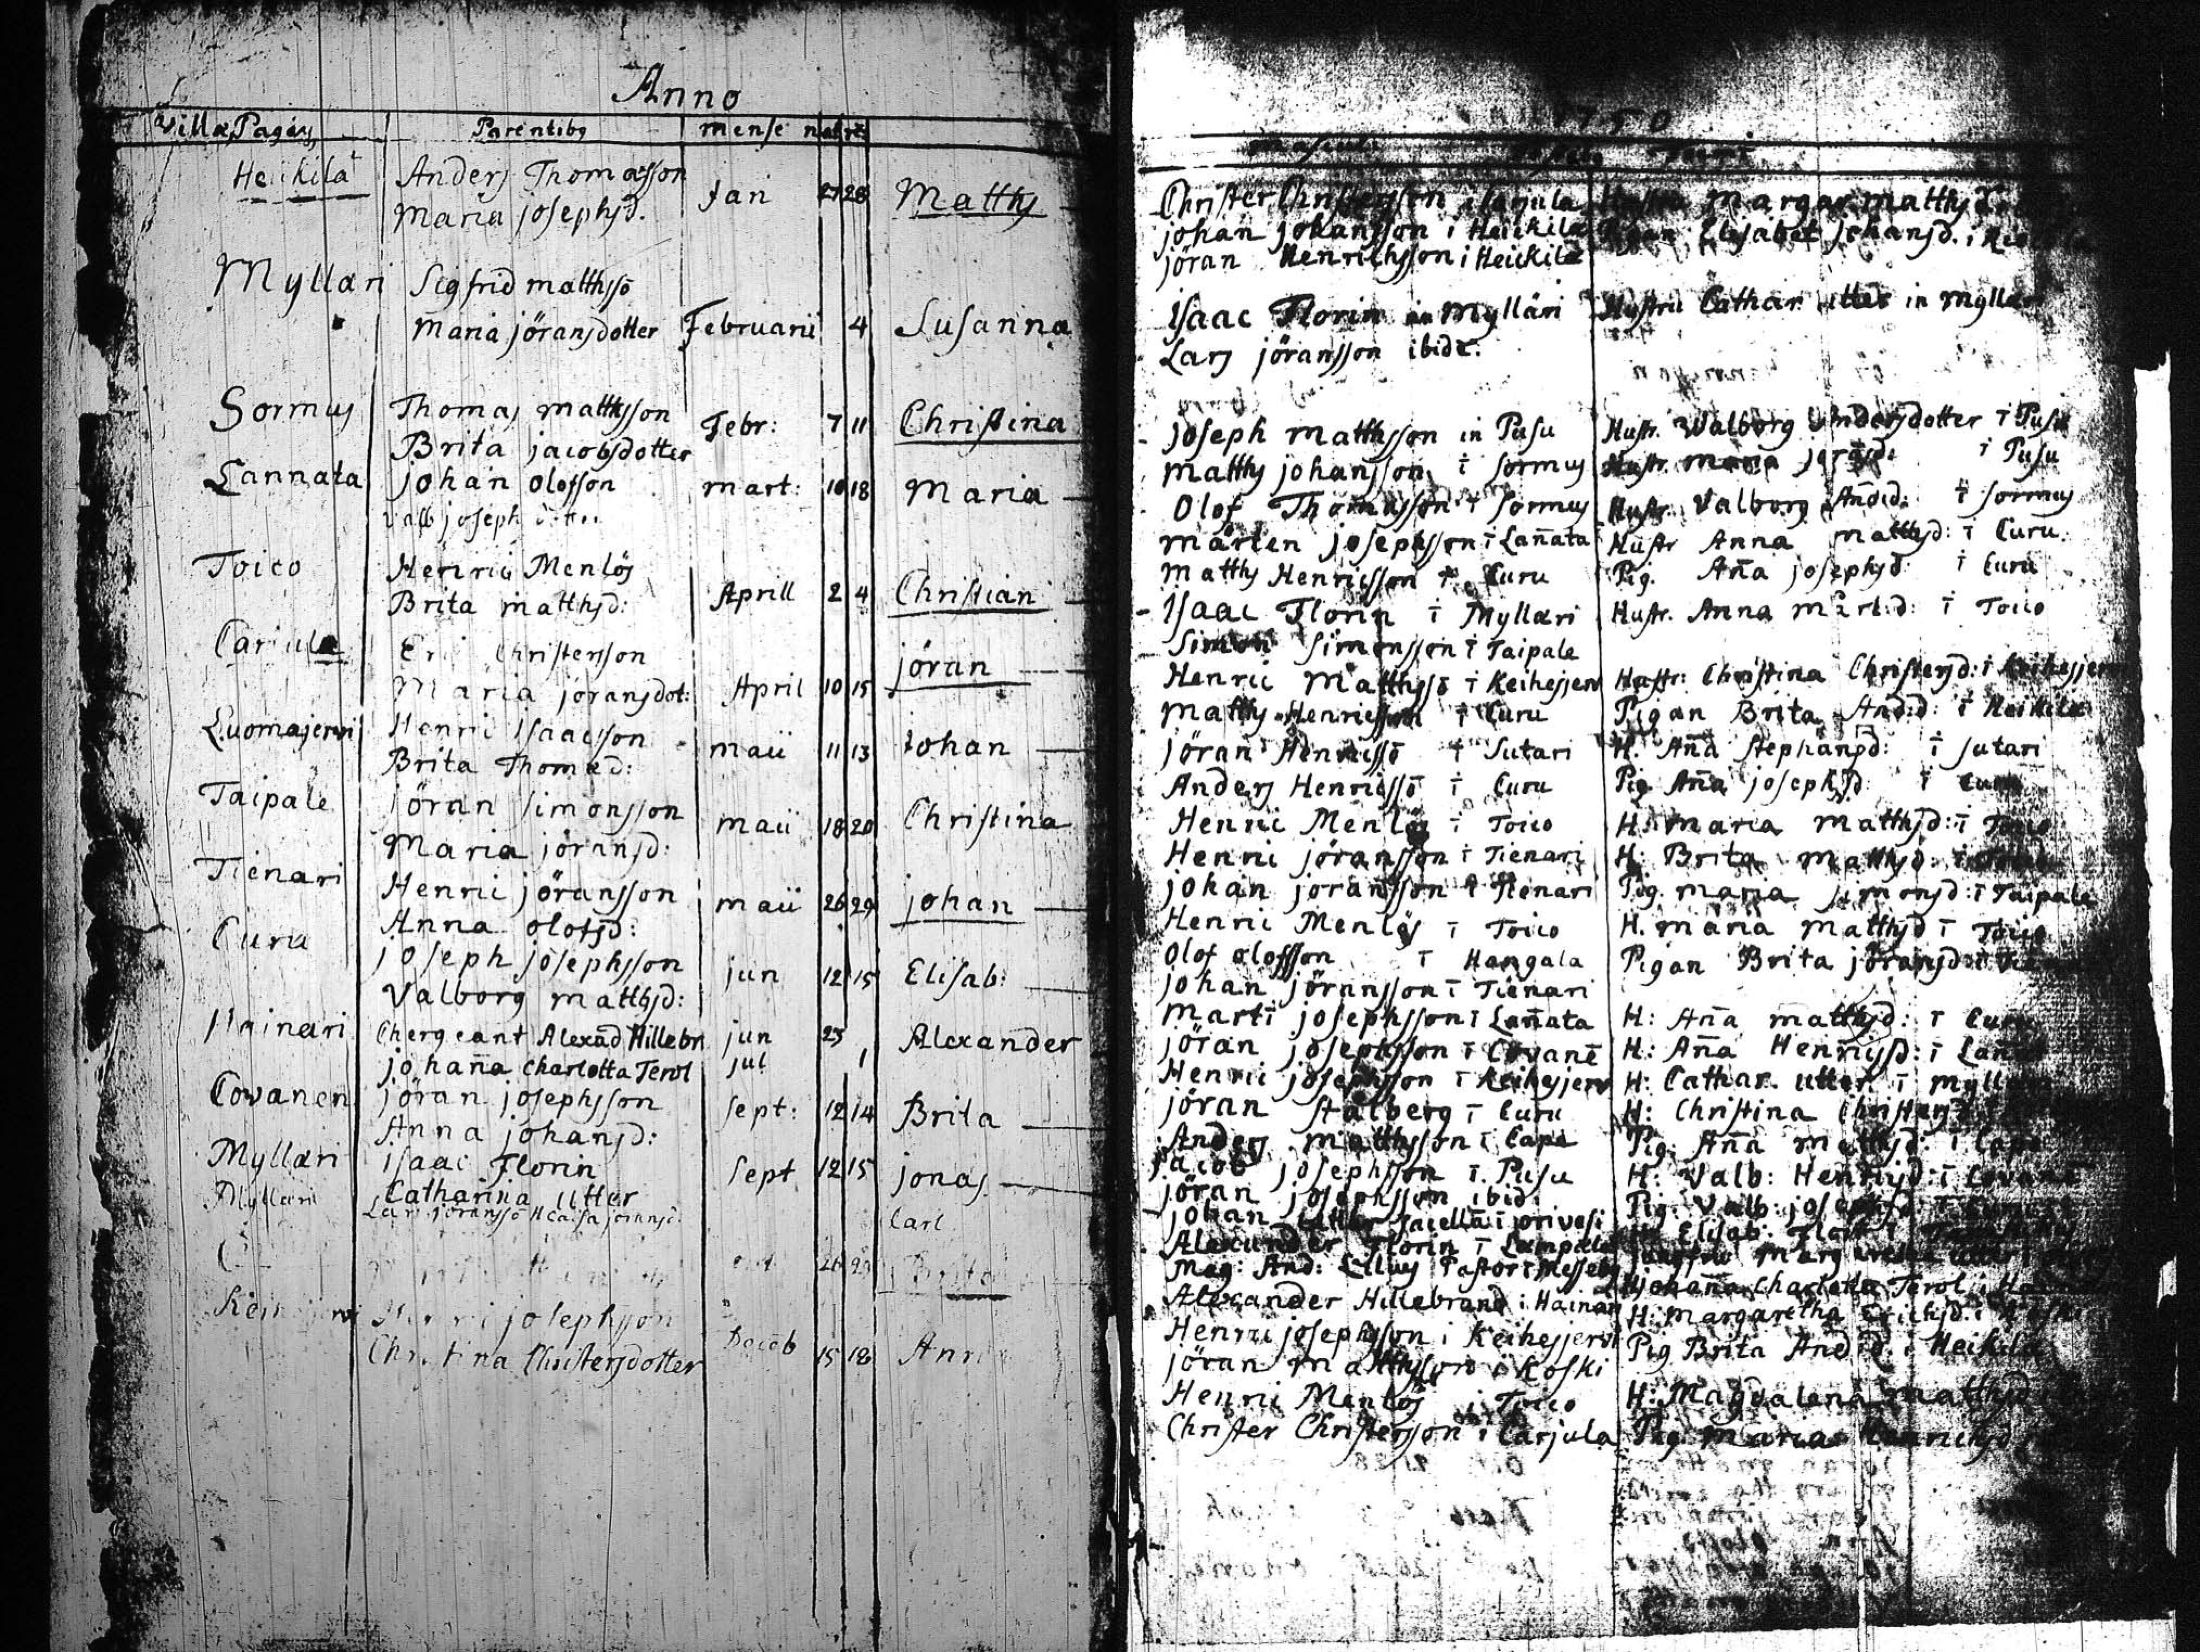 Anno
Villæ, Pagus Parentibus mense nat: ren:
Heickilä Anders Thomasson Jan 27 28 Matths
Maria josephsd.
Myllari Sigfrid matthsso
Maria jöransdotter Februarii 4 Susanna
Sormus Thomas matthsson Febr: 7 11 Christina
Brita jacobsdotter
Lannata johan olofsson mart: 10 18 Maria
Valb joseph
Toico Henric Menlös
Brita matthsd: Aprill 2 4 Christian
Carjula Eric Christersson jöran
Maria joransdot: April 10 15
Luomajerwi Henric Isaacsson maii 11 13 Johan
Brita Thomæd:
Taipale jöran simonsson maii 18 20 Christina
Maria jöransd:
Tienari Henric jöransson maii 26 29 johan
Anna olofsd:
Curu joseph josephsson jun 12 15 Elisab:
Valborg matthsd:
Hainari Chergeant Alexād Hillebr jun 23 Alexander
johan̄a Charlotta Terol jul 1
Covanen jöran josephsson Sept: 12 14 Brita
Anna johansd:
Myllari Isaac Florin Sept 12 15 jonas
Myllari Catharina Utter
Lars jöranssō H Caisa jöransd: Carl
26 29 Brita
Henric josephsson
Christina Christersdotter Deceb 15 18 Anna
1750
Christer Christersson i Carjula Hustru Margar. matthsd
johan johansson i Heickilæ Pigan Elisabet johansd. i
jöran Henrichsson i Heickilæ
Isaac Florin in Mylläri Hustru Cathar. utter in myllari
Lars jöransson ibidē:
joseph matthsson in Pusu Hustr. Walborg Andersdotter i Pusu
matths johansson i sormus Hustr. maria joräsd: i Pusu
Olof Thomasson i sormus Hustr. Valborg Andd: i sormus
mårten josephsson i Lan̄ata Hustr Anna matthsd: i Curu
matths Henricsson i Curu Pig. An̄a josephsd: i Curu
Isaac Florin i Myllæri Hustr. Anna mårtd: i Toico
Simon simonsson i Taipale
Henric matthssō i Keihesjerv Hustr: Christina Christersd: i Keihesjerv
matths Henricsson i Curu Pigan Brita And:d: i Heickilæ
jöran Henricssō i Sutari H. An̄a stephansd: i sutari
Anders Henricssō i Curu Pig An̄a josephsd: i Curu
Henric Menlös i Toico H: maria matthsd: i Toico
Henric jöransson i Tienari H: Brita matthsd: i Toico
johan joransson i Tienari Pig. maria simonsd: i Taipale
Henric Menlös i Toico H. maria matthsd i Toico
Olof olofsson i Hangala Pigan Brita jöransd: i
johan jöransson i Tienari
Marti josephsson i Lan̄ata H: An̄a matthsd: i Curu
jöran josephsson i Covanē H: An̄a Henricsd: i Lan̄ata
Henric josephsson i Keihesjerv H: Cathar. utter i myllari
jöran stålberg i Curu H: Christina Christersd
Anders matthsson i Capa Pig: An̄a matthsd: i Capa
jacob josephsson i Pusu H: Valb: Henricsd: i Covanē
jöran josephsson ibid: Pig: Valb: josephsd i
johan utter i orivesi H: Elisab: Flor
Alexander Florin i Lampula jungfru Margaretha utter
Mag: And: Lillius Pastor i Messeby johan̄a Charlotta Terol i
Alexander Hillebrand i Hainari H: Margaretha Erichsd: i
Henric josephsson i Keihesjerv Pig Brita And:d: i Heickilä
jöran matthsson i Koski
Henric Menlös i Toico H: Magdalena matthsd
Christer Christersson i Carjula Pig: maria Henrichsd